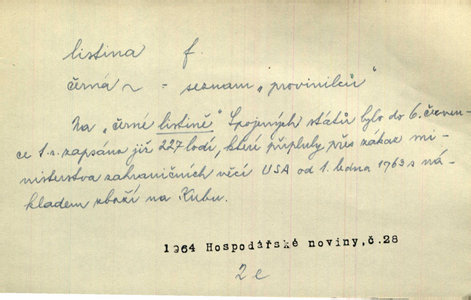 listina f.
černá ~ = seznam „provinilců"
Na „černé listině" Spojených států bylo do 6. červen-
ce t. r. zapsáno již 227 lodí, které připluly přes zákaz mi-
nisterstva zahraničních věcí USA od 1. ledna 1963 s ná-
kladem zboží na Kubu.
1964 Hospodářské noviny, č.28
2e